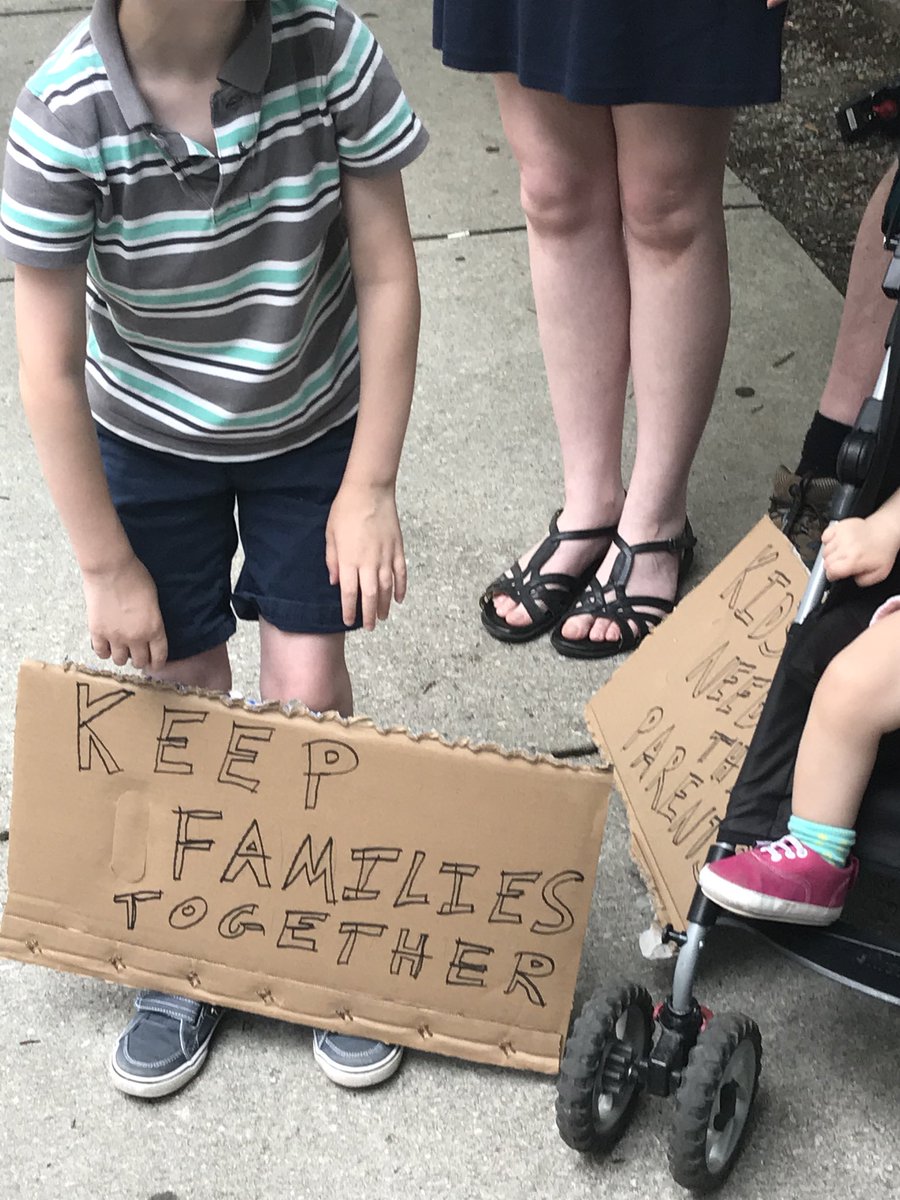 KEEP
FAMILIES
TOGETHER
KIDS
NEED
PARENTS